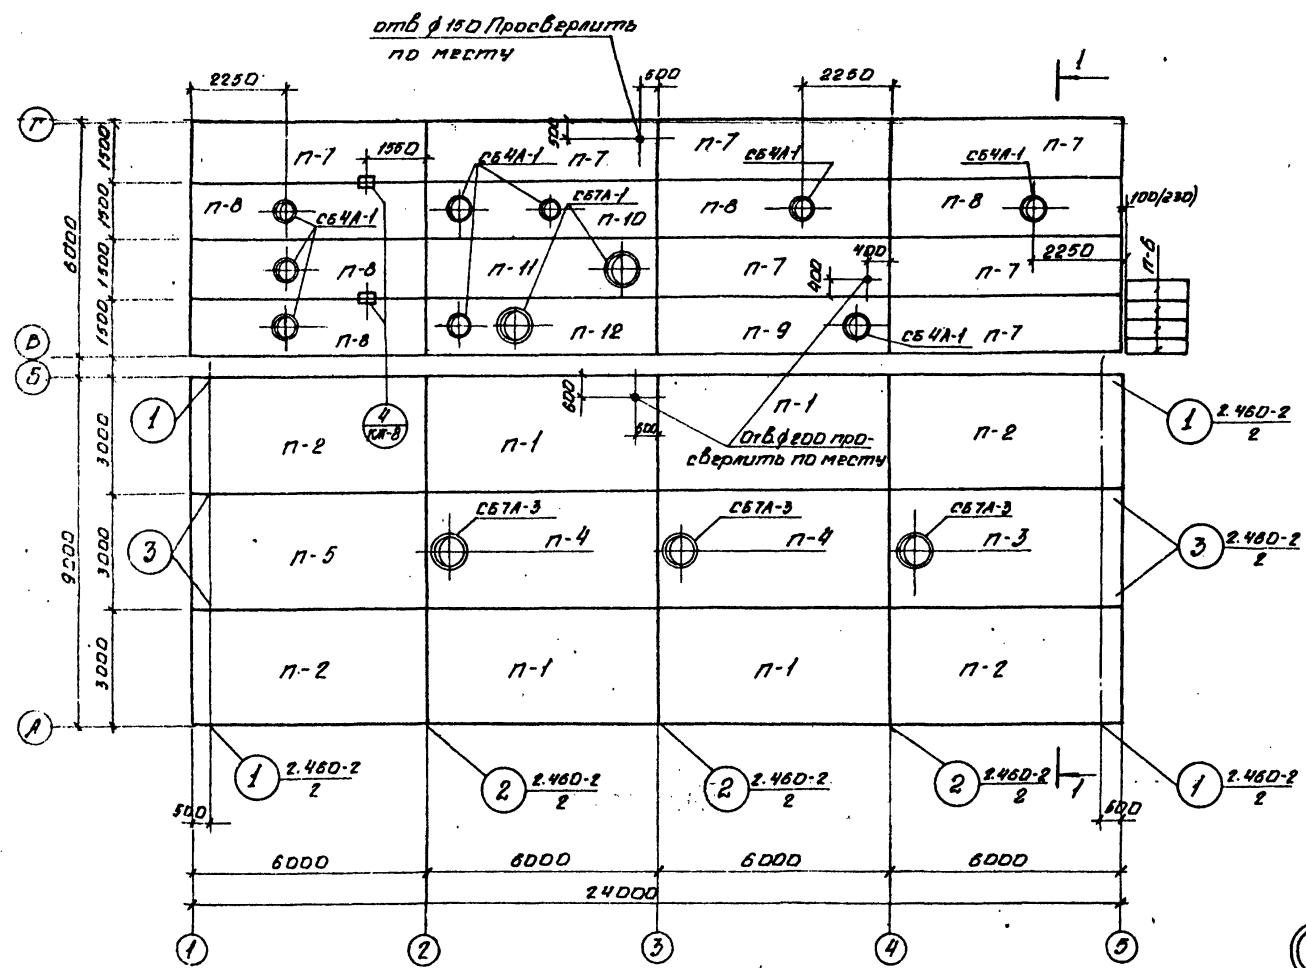 отв ϕ150 Просверлить
по месту
1
2250
500
2250
Г
1500
1500
1500
1500
6000
500
П-7
1560
СБ4А-1
П-7
П-7
СБ4А-1
СБ4А-1
П-7
П-8
СБ4А-1
СБ7А-1
П-10
П-8
П-8
100(230)
П-8
П-11
П-7
400
400
П-7
2250
П-6
П-8
П-12
П-9
СБ4А-1
П-7
В
Б
1
4
П-2
П-1
600
500
П-1
Отв.ϕ200 про-
сверлить по месту
П-2
1
2.460-2
2
3000
3000
3000
9000
3
П-5
СБ7А-3
П-4
СБ7А-3
П-4
СБ7А-3
П-3
3
2.460-2
2
П-2
П-1
П-1
П-2
А
1
2.460-2
2
2
2.460-2
2
2
2.460-2
2
2
2.460-2
2
1
1
2.460-2
2
500
500
6000
6000
6000
6000
24000
1
2
3
4
5